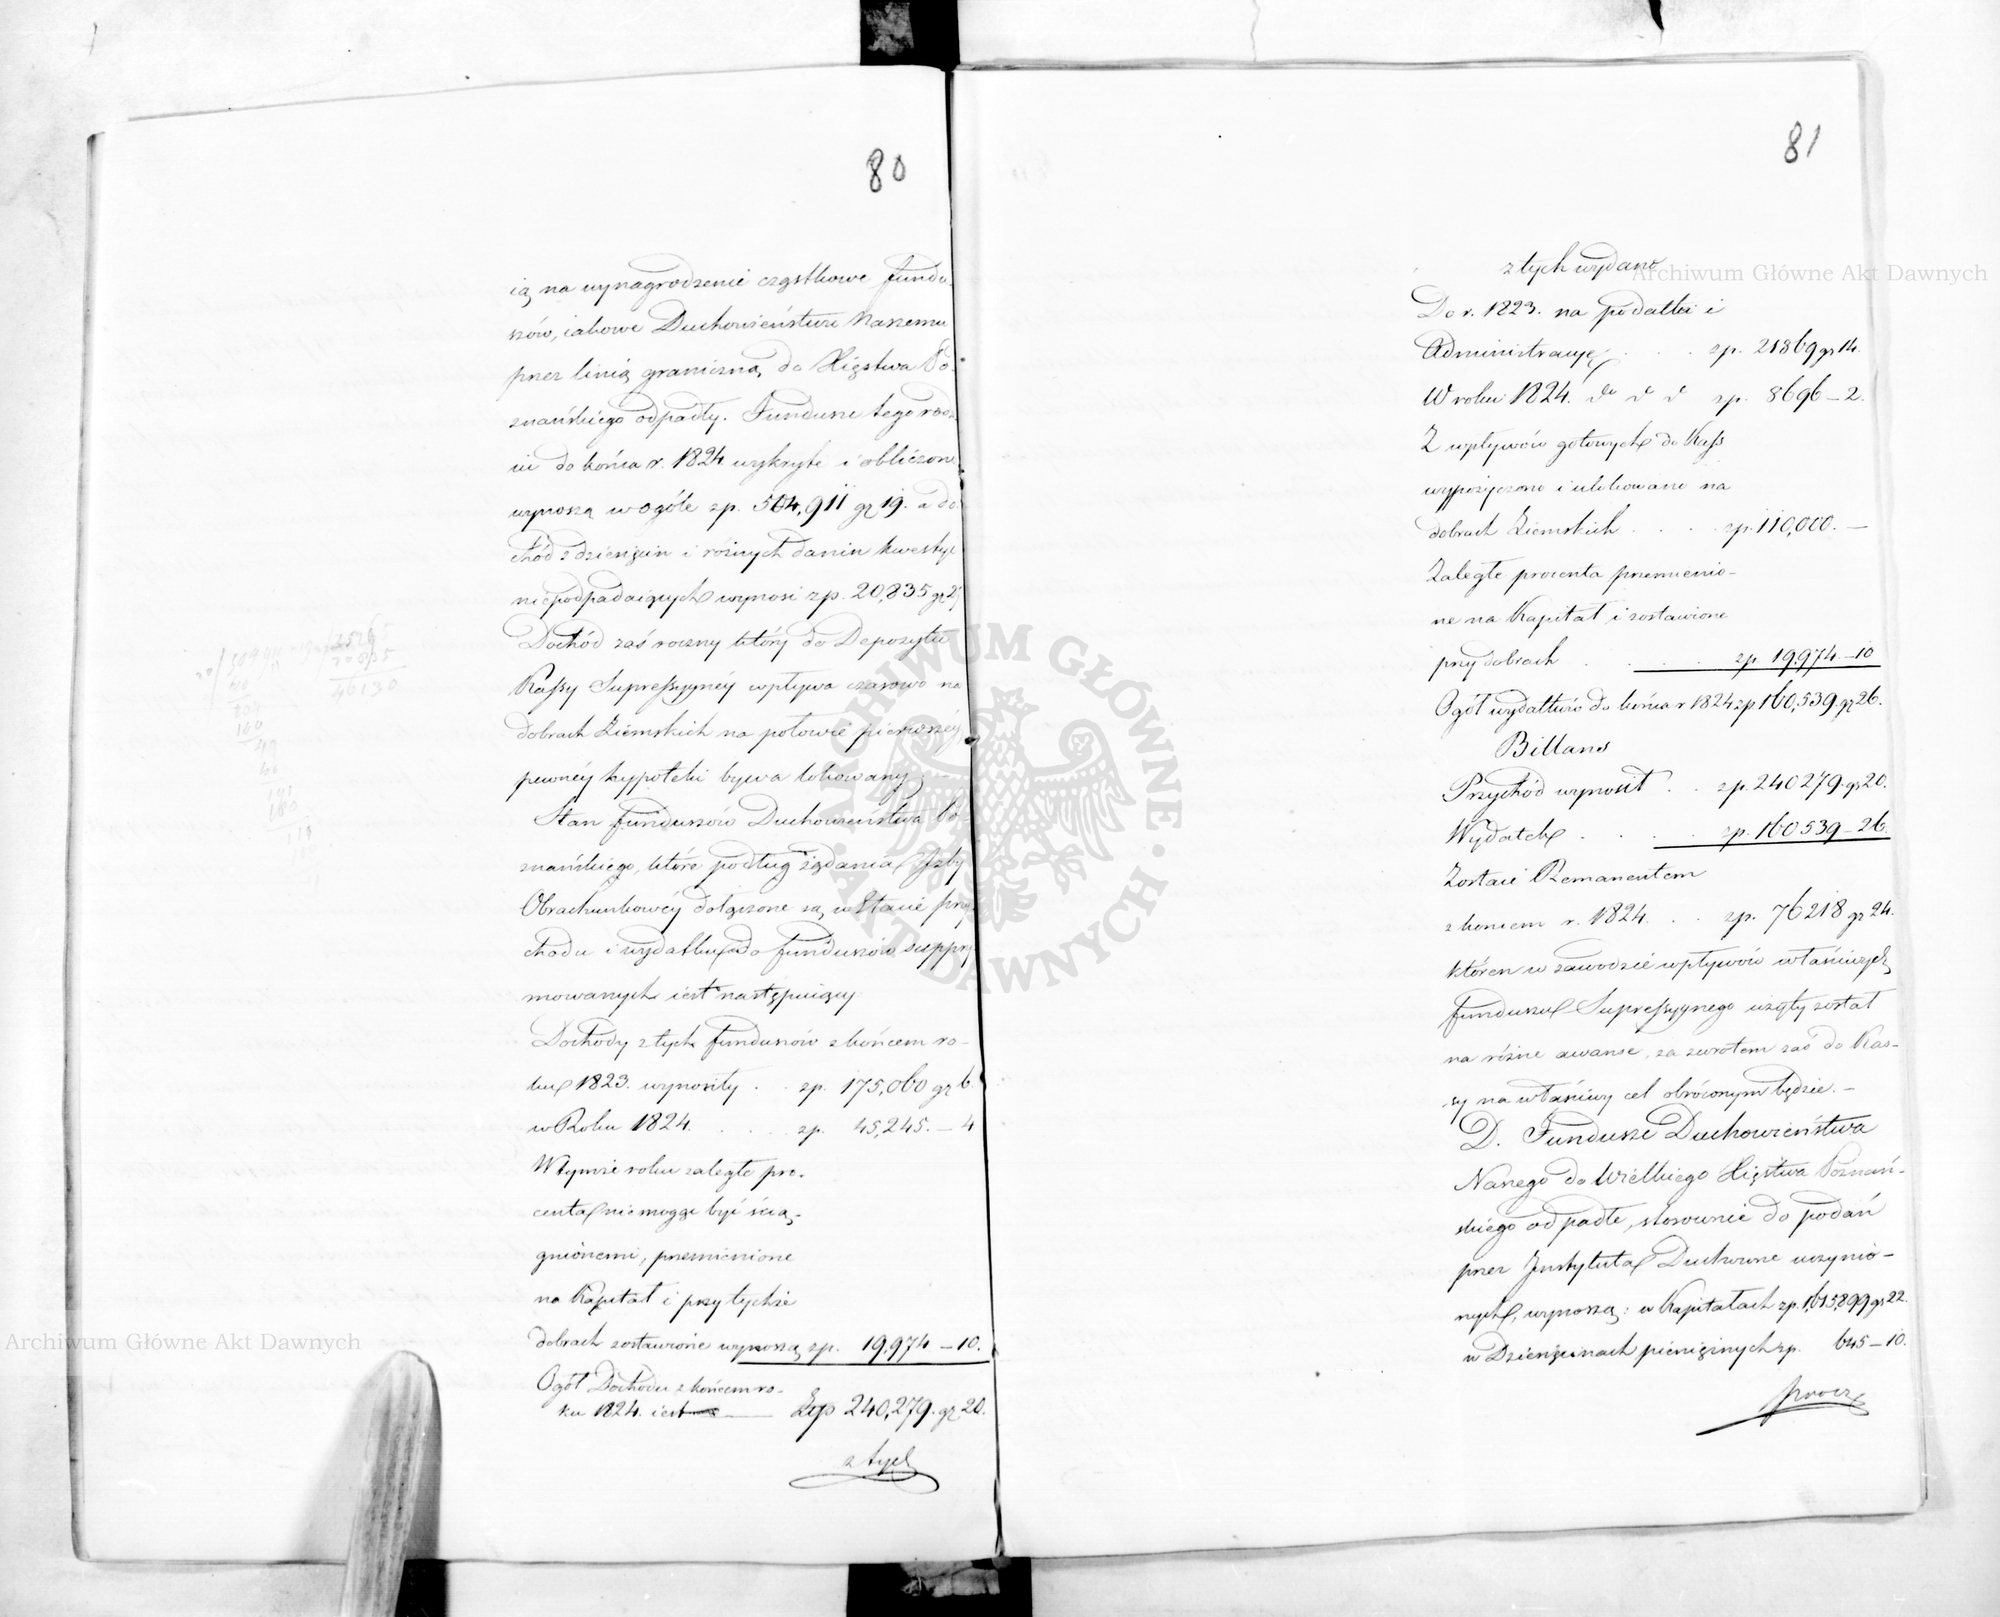 80
ią na wynagrodzenie cząstkowe fundu-
szów, iakowe Duchowieństwu Naszemu
przez linią graniczną do Xięstwa Po-
znańskiego odpadły. Fundusze tego rodza-
iu do końca r. 1824 wykryte i obliczone
wynoszą w ogóle zp. 504,911 gr 19. a do-
chód z dzierżaw i różnych danin kwestyi
niepodpadaiących wynosi zp. 20,835 gr
Dochód zaś roczny który do Depozytu
Kassy Supressyynéy wpływa czasowo na
dobrach Ziemskich na połowie pierwszéy
pewnéy hypoteki bywa lokowany.
Stan funduszów Duchowieństwa Po-
znańskiego, które podług żądania Izby
Obrachunkowéy dołączone są w Stanie przy-
chodu i wydatku do funduszów suppry-
mowanych iest następuiący:
Dochody z tych funduszów z końcem ro-
ku 1823. wynosiły . . zp. 175,060 gr 6.
w Roku 1824. . . . . zp. 45,245. — 4
W tymże roku zaległe pro-
centa nie mogąc być ścią-
gnionemi, przemienione
na Kapitał i przy tychże
dobrach zostawione wynoszą zp. 19,974 — 10.
Ogół Dochodu z końcem ro-
ku 1824. iest — Złp 240,279. gr 20.
z tych
81
z tych wydano
Do r. 1823. na podatki i
Administracyę . . . zp. 21869 gr 14.
W roku 1824. do do do zp. 8696 — 2.
Z wpływów gotowych do Kass
wypożyczono i ulokowano na
dobrach Ziemskich . . . zp. 110,000. —
Zaległe procenta przemienio-
ne na Kapitał i zostawione
przy dobrach . . . . zp 19,974 — 10
Ogół wydatków do końca r 1824 zp 160,539. gr 26.
Billans
Przychód wynosił . . zp. 240279. gr 20.
Wydatek . . . . zp. 160539 — 26.
Zostaie Remanentem
z koncem r. 1824. . . zp. 76218 gr 24.
któren w zawodzie wpływów właściwych
funduszu Supressyynego użyty został
na różne awanse, za zwrotem zaś do Kas-
sy na właściwy cel obróconym będzie. —
D. Fundusze Duchowieństwa
Naszego do Wielkiego Xięstwa Poznań-
skiego odpadłe, stosownie do podań
przez Instytuta Duchowne uczynio-
nych, wynoszą: w Kapitałach zp. 1,615,899 gr 22.
w Dzierżawach pieniężnych zp. 645 — 10.
procz
Archiwum Główne Akt Dawnych
Archiwum Główne Akt Dawnych
ARCHIWUM GŁÓWNE · AKT DAWNYCH ·